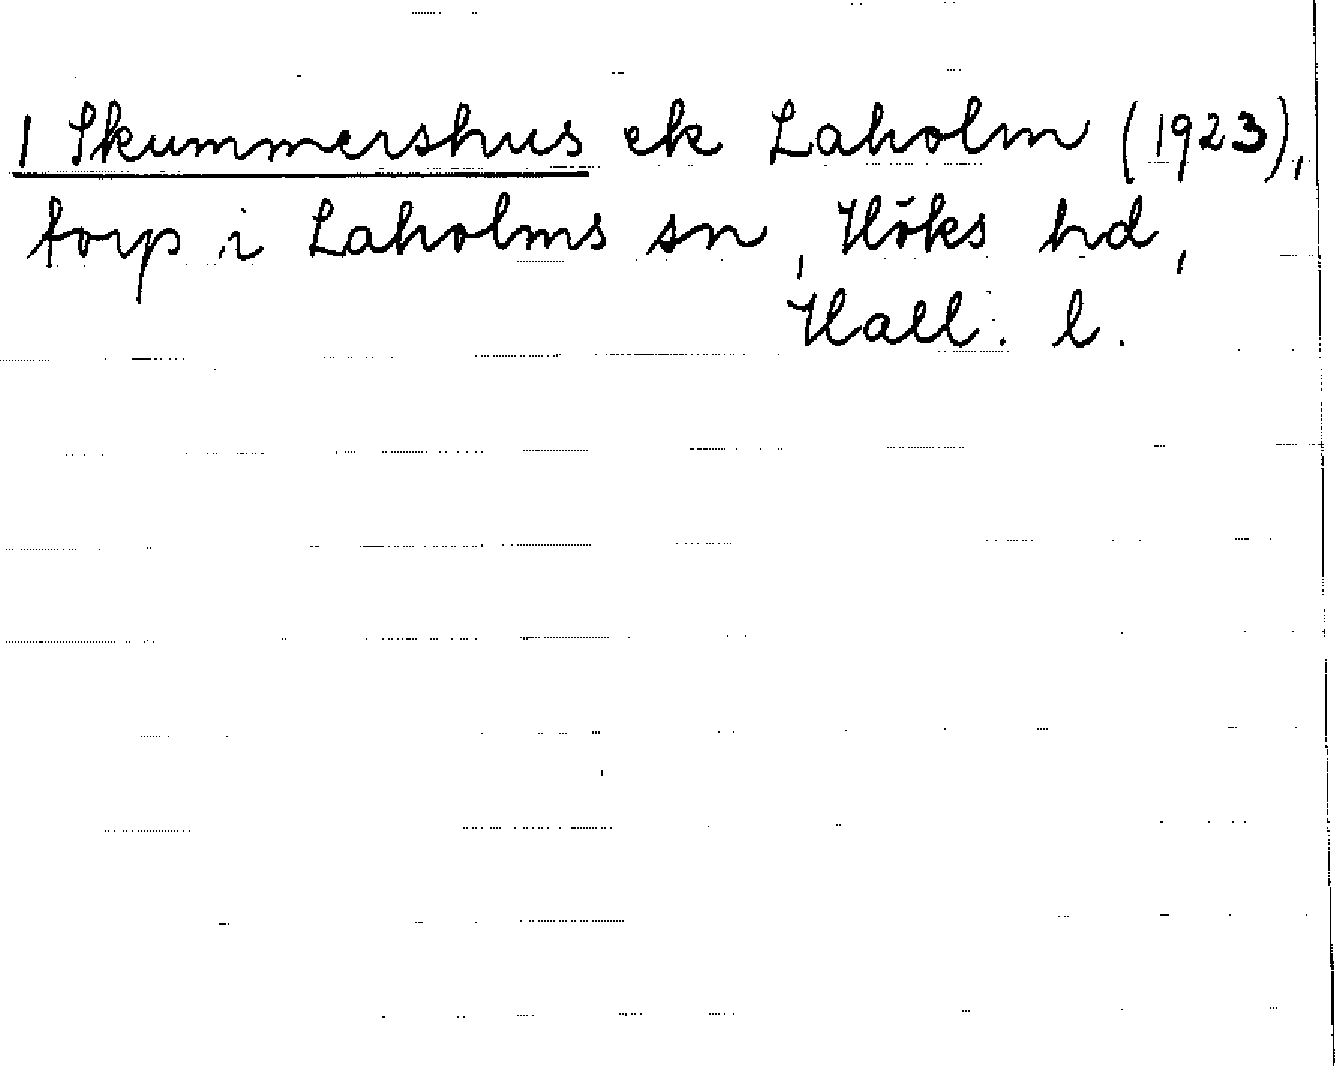 1 Skummershus ek Laholm (1923),
torp i Laholms sn, Höks hd,
Hall. l.